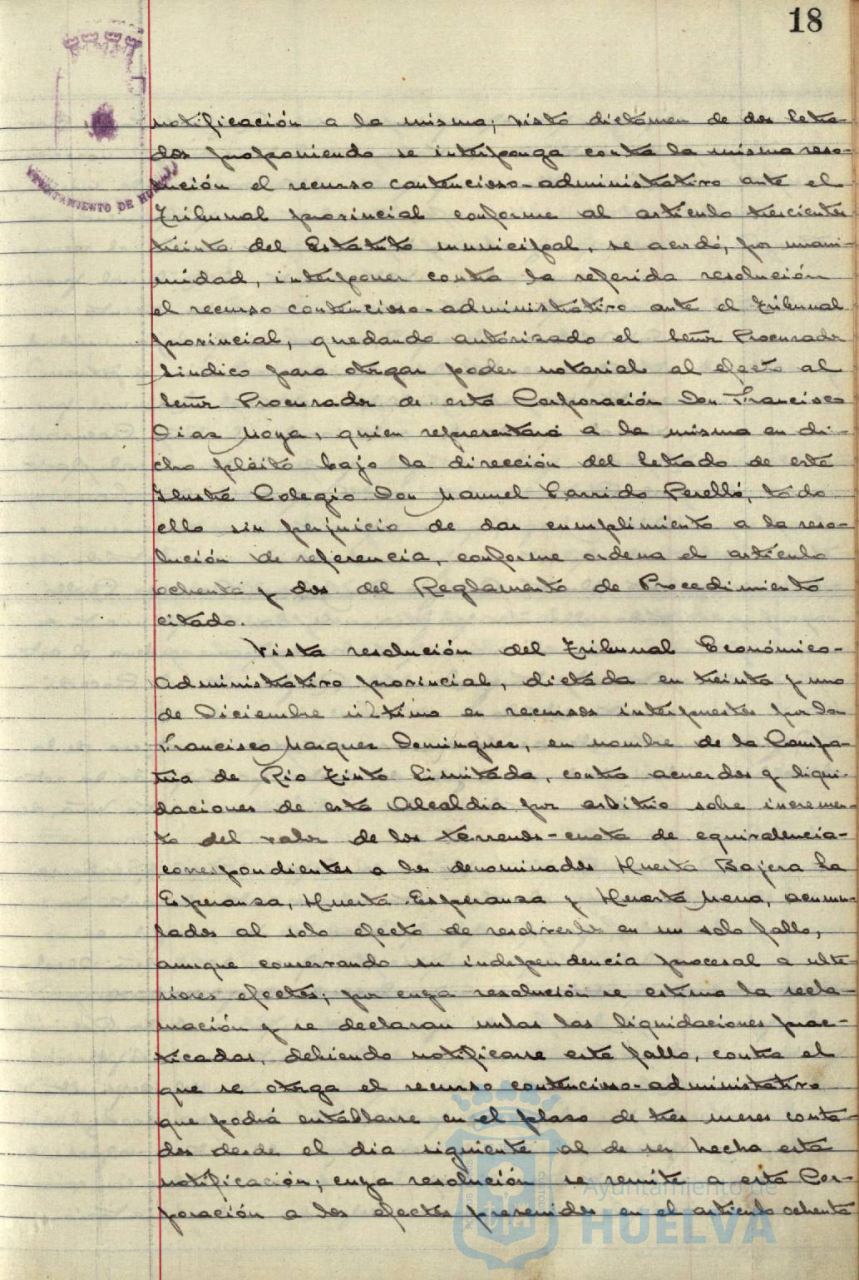 18
AYUNTAMIENTO DE HUELVA
notificación a la misma; visto dictámen de dos letra-
dos proponiendo se interponga contra la misma reso-
lución el recurso contencioso-administrativo ante el
Tribunal provincial conforme al artículo trescientos
treinta del Estatuto municipal, se acordó, por unani-
midad, interponer contra la referida resolución
el recurso contencioso-administrativo ante el Tribunal
provincial, quedando autorizado el Señor Procurador
Síndico para otorgar poder notarial al efecto al
Señor Procurador de esta Corporación Don Francisco
Díaz Moya, quien representará a la misma en di-
cho pleito bajo la dirección del Letrado de este
Ilustre Colegio Don Manuel Garrido Perelló, todo
ello sin perjuicio de dar cumplimiento a la reso-
lución de referencia, conforme ordena el artículo
ochenta y dos del Reglamento de Procedimiento
citado.
Vista resolución del Tribunal Económico-
administrativo provincial, dictada en treinta y uno
de Diciembre último en recursos interpuestos por Don
Francisco Marquez Dominguez, en nombre de la Compa-
ñia de Rio Tinto Limitada, contra acuerdos y liqui-
daciones de esta Alcaldia por arbitrio sobre incremen-
to del valor de los terrenos-cuota de equivalencia-
correspondientes a los denominados Huerta Bajera La
Esperanza, Huerta Esperanza y Huerta Mena, acumu-
lados al solo efecto de resolverlos en un solo fallo,
aunque conservando su independencia procesal a ulte-
riores efectos; por cuya resolución se estima la recla-
mación y se declaran nulas las liquidaciones prac-
ticadas, debiendo notificarse este fallo, contra el
que se otorga el recurso contencioso-administrativo
que podrá entablarse en el plazo de tres meses conta-
dos desde el dia siguiente al de ser hecha esta
notificación; cuya resolución se remite a esta Cor-
poración a los efectos prevenidos en el artículo ochenta
Ayuntamiento de
HUELVA